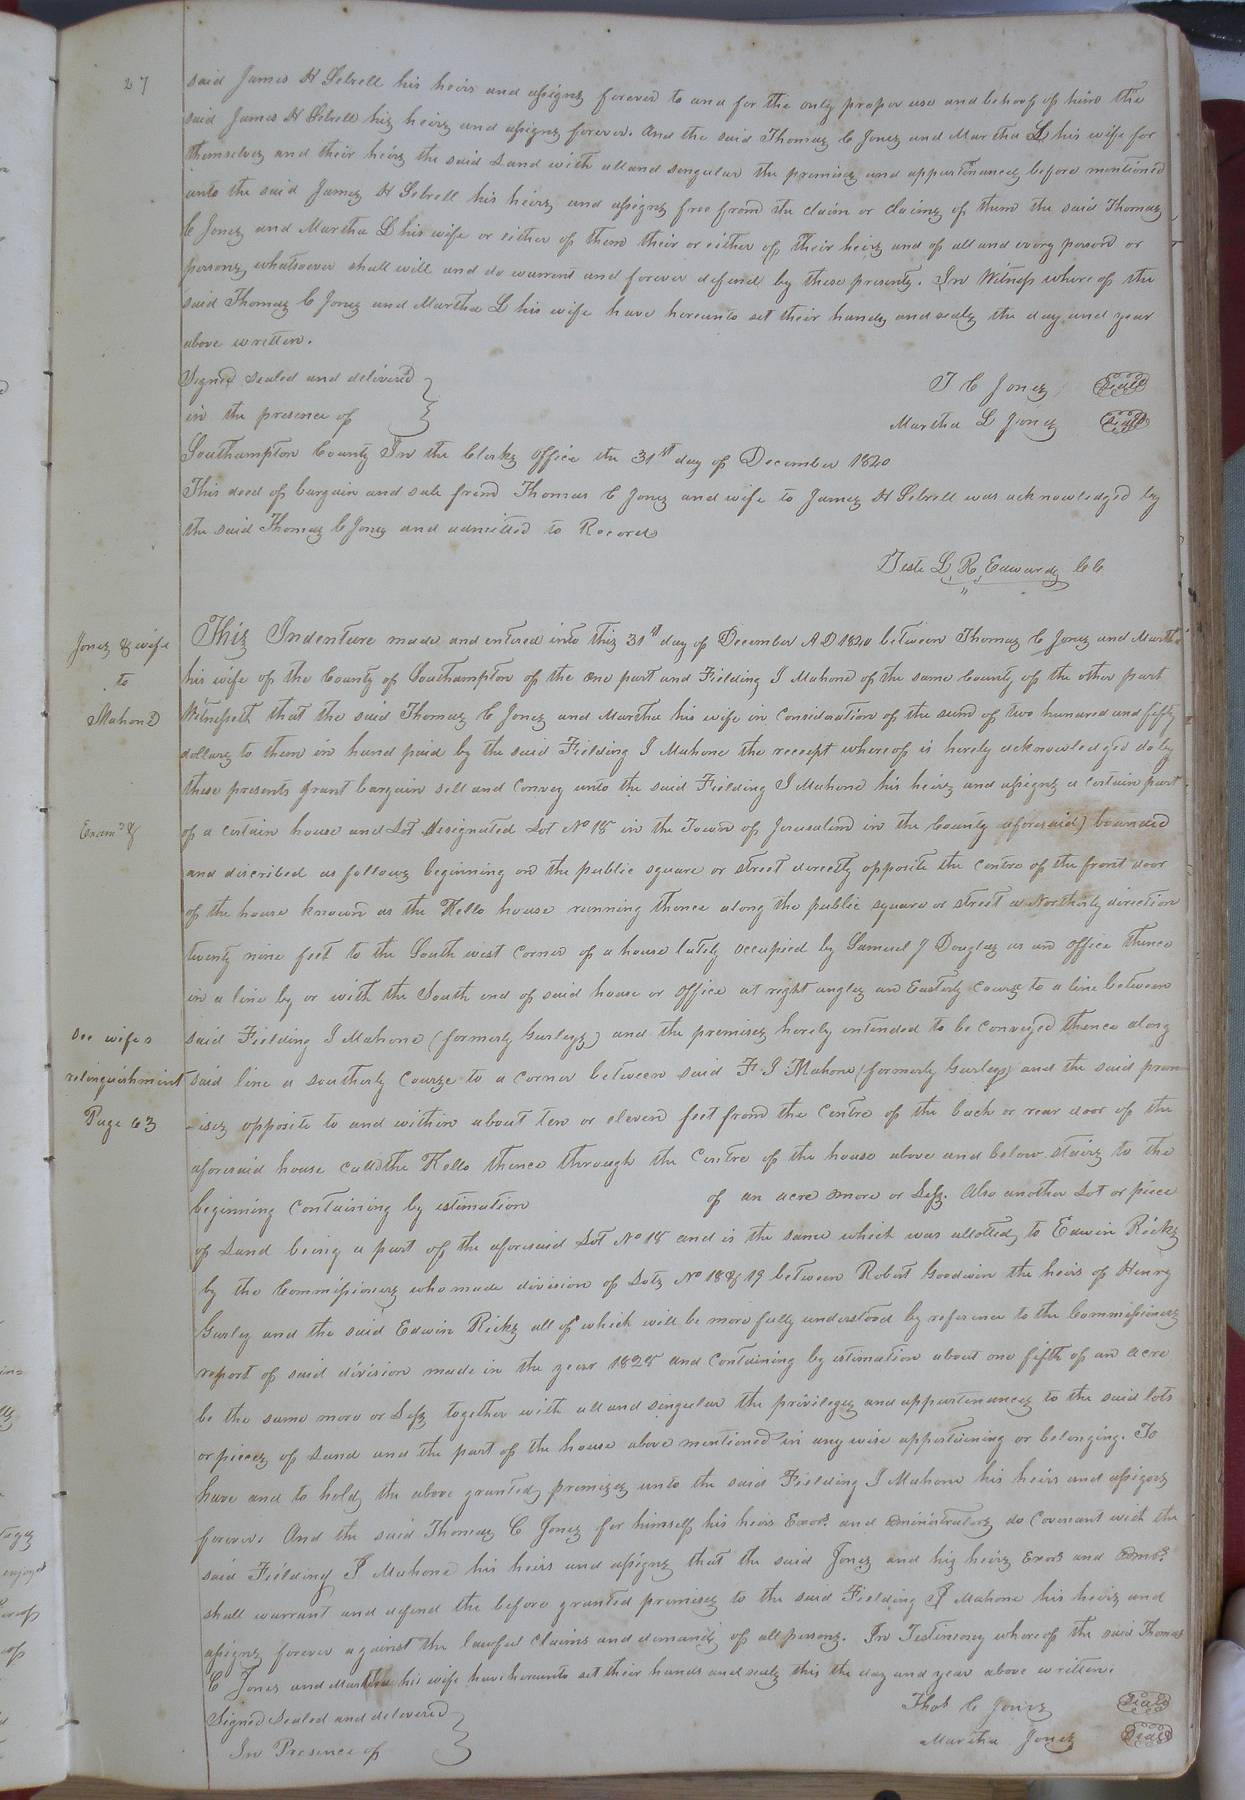 27
said James H Sebrell his heirs and assigns forever to and for the only proper use and behoof of him the
said James H Sebrell his heirs and assigns forever. And the said Thomas C Jones and Martha L his wife for
themselves and their heirs the said Land with all and singular the premises and appurtinances before mentioned
unto the said James H Sebrell his heirs and assigns free from the claim or claims of them the said Thomas
C Jones and Martha L his wife or either of them their or either of their heirs and of all and every person or
persons whatsoever shall will and do warrant and forever defend by these presents. In Witness where of the
said Thomas C Jones and Martha L his wife have hereunto set their hands and seals the day and year
above written.
Signed sealed and delivered
in the presence of
T C Jones Seal
Martha L Jones Seal
Southampton County In the Clerks Office the 31st day of December 1840
This deed of bargain and sale from Thomas C Jones and wife to James H Sebrell was acknowledged by
the said Thomas C Jones and admitted to Record
Teste L. R. Edwards CC
Jones & wife
to
Mahone
Exam'd &
See wifes
relinquishment
Page 63
This Indenture made and entered into this 31st day of December AD 1840 between Thomas C Jones and Martha
his wife of the County of Southampton of the one part and Fielding J Mahone of the same County of the other part
Witnesseth that the said Thomas C Jones and Martha his wife in consideration of the sum of two hundred and fifty
dollars to them in hand paid by the said Fielding J Mahone the receipt whereof is hereby acknowledged do by
these presents grant bargain sell and convey unto the said Fielding J Mahone his heirs and assigns a certain part
of a certain house and Lot designated Lot No 18 in the Town of Jerusalem in the County aforesaid) bounded
and discribed as follows beginning on the public square or street directly opposite the centre of the front door
of the house known as the Kello house running thence along the public square or street a Northerly direction
twenty nine feet to the South west corner of a house lately occupied by Samuel J Douglas as an office thence
in a line by or with the South end of said house or office at right angles an Easterly course to a line between
said Fielding J Mahone (formerly Gurleys) and the premises hereby intended to be conveyed thence along
said line a southerly course to a corner between said F J Mahone (formerly Gurleys) and the said prem
-ises opposite to and within about ten or eleven feet from the centre of the back or rear door of the
aforesaid house call'd the Kello thence through the centre of the house above and below stairs to the
beginning containing by estimation of an acre more or Less. Also another Lot or piece
of Land being a part of the aforesaid Lot No 18 and is the same which was allotted to Edwin Ricks
by the Commissioners who made division of Lots No 18 & 19 between Robert Goodwin the heirs of Henry
Gurley and the said Edwin Ricks all of which will be more fully understood by reference to the Commissioners
report of said division made in the year 1828 and containing by estimation about one fifth of an acre
be the same more or Less together with all and singular the privileges and appurtenances to the said lots
or pieces of Land and the part of the house above mentioned in any wise appertaining or belonging. To
have and to hold the above granted premises unto the said Fielding J Mahone his heirs and assigns
forever. And the said Thomas C Jones for himself his heirs Exors. and administrators do covenant with the
said Fielding J Mahone his heirs and assigns that the said Jones and his heirs Exors and admrs.
shall warrant and defend the before granted premises to the said Fielding J Mahone his heirs and
assigns forever against the lawful claims and demands of all persons. In Testimony whereof the said Thomas
C Jones and Martha his wife have hereunto set their hands and seals this the day and year above written.
Signed Sealed and delivered
In Presence of
Thos C Jones Seal
Martha Jones Seal